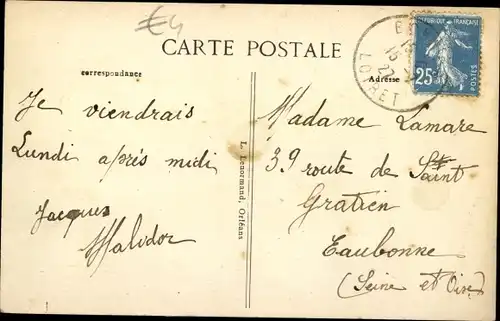 €4
CARTE POSTALE
correspondance
Adresse
RÉPUBLIQUE FRANÇAISE
25c
POSTES
LOIRET
Je viendrais
Lundi après midi
Jacques
Malidor
L. Lenormand, Orléans
Madame Lamare
39 route de Saint
Gratien
Eaubonne
(Seine et Oise)